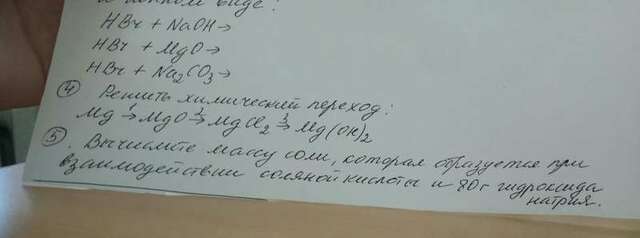 ионном виде:
HBr + NaOH→
HBr + MgO→
HBr + Na2CO3→
④ Решить химический переход:
Mg 1→ MgO 2→ MgCl2 3→ Mg(OH)2
⑤. Вычислите массу соли, которая образуется при
взаимодействии соляной кислоты и 80г гидроксида
натрия.